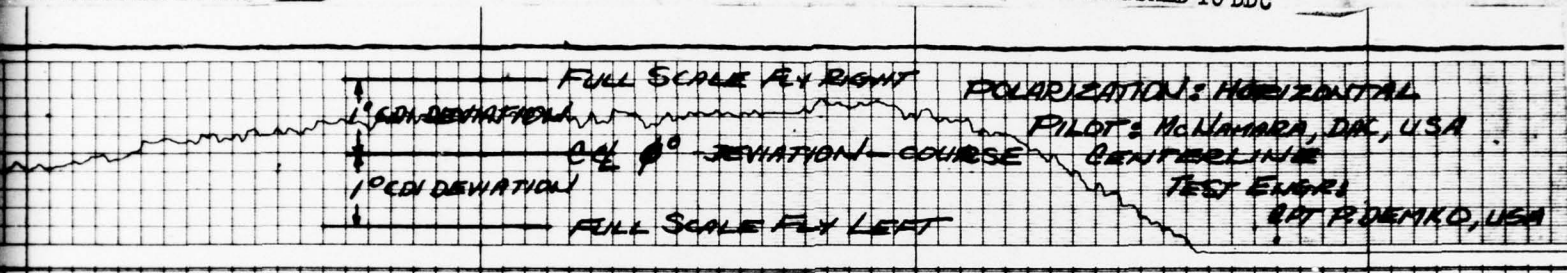 TO DDC
FULL SCALE FLY RIGHT
1° CDI DEVIATION
℄ 0° DEVIATION - COURSE CENTERLINE
1° CDI DEVIATION
FULL SCALE FLY LEFT
POLARIZATION: HORIZONTAL
PILOT: McNAMARA, DAC, USA
TEST ENGR:
CPT P. DEMKO, USA